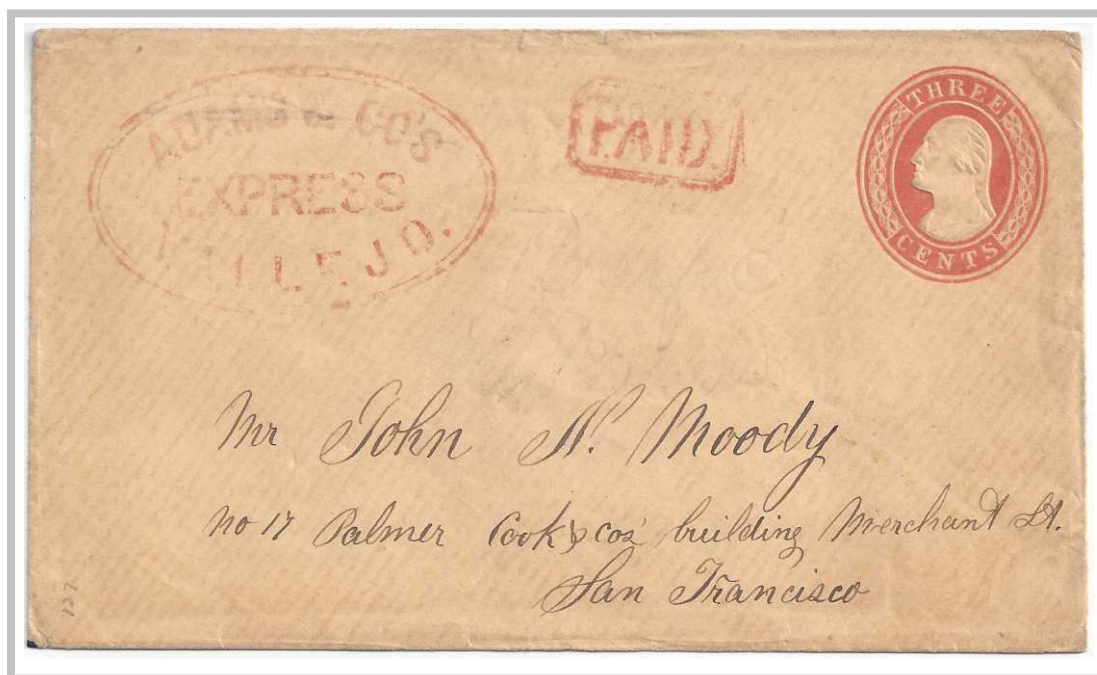 ADAMS & CO'S
EXPRESS
VALLEJO.
PAID.
THREE
CENTS
Mr John N. Moody
no 17 Palmer Cook & cos' building Merchant St.
San Francisco
127